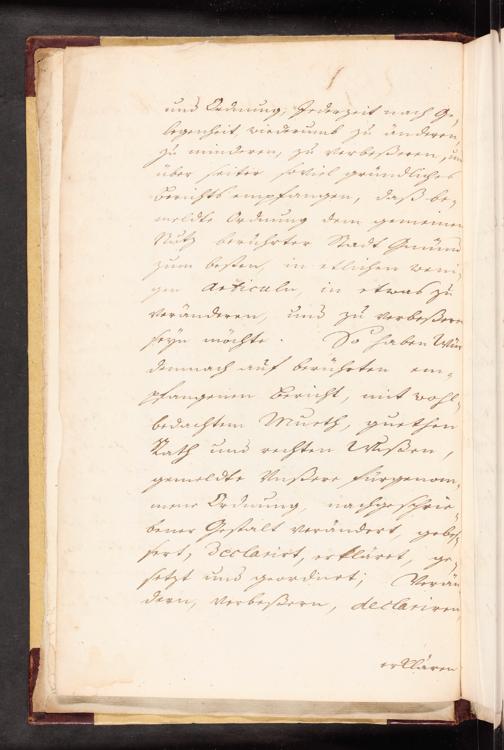 und Ordnung, Jederzeit nach Ge-
legenheit wiederumb zu änderen,
zu minderen, zu verbeßeren, und
über seiter soviel gründliches
Berichts empfangen, daß be-
meldte Ordnung dem gemeinen
Nutz berührter Stadt Gmünd
zum besten, in etlichen weni-
gen Articuln, in etwas zu
veränderen, und zu verbeßeren
seyn möchte. So haben Wür
demnach auf berührten em-
pfangenen Bericht, mit wohl-
bedachtem Mueth, guethen
Rath und rechten Wißen,
gemeldte Unßere fürgenom-
mene Ordnung, nachgeschrie-
bener Gestalt verändert, gebes-
sert, Declarirt, erkläret, ge-
setzt und geordnet; Verän-
dern, verbeßern, declariren,
erklären